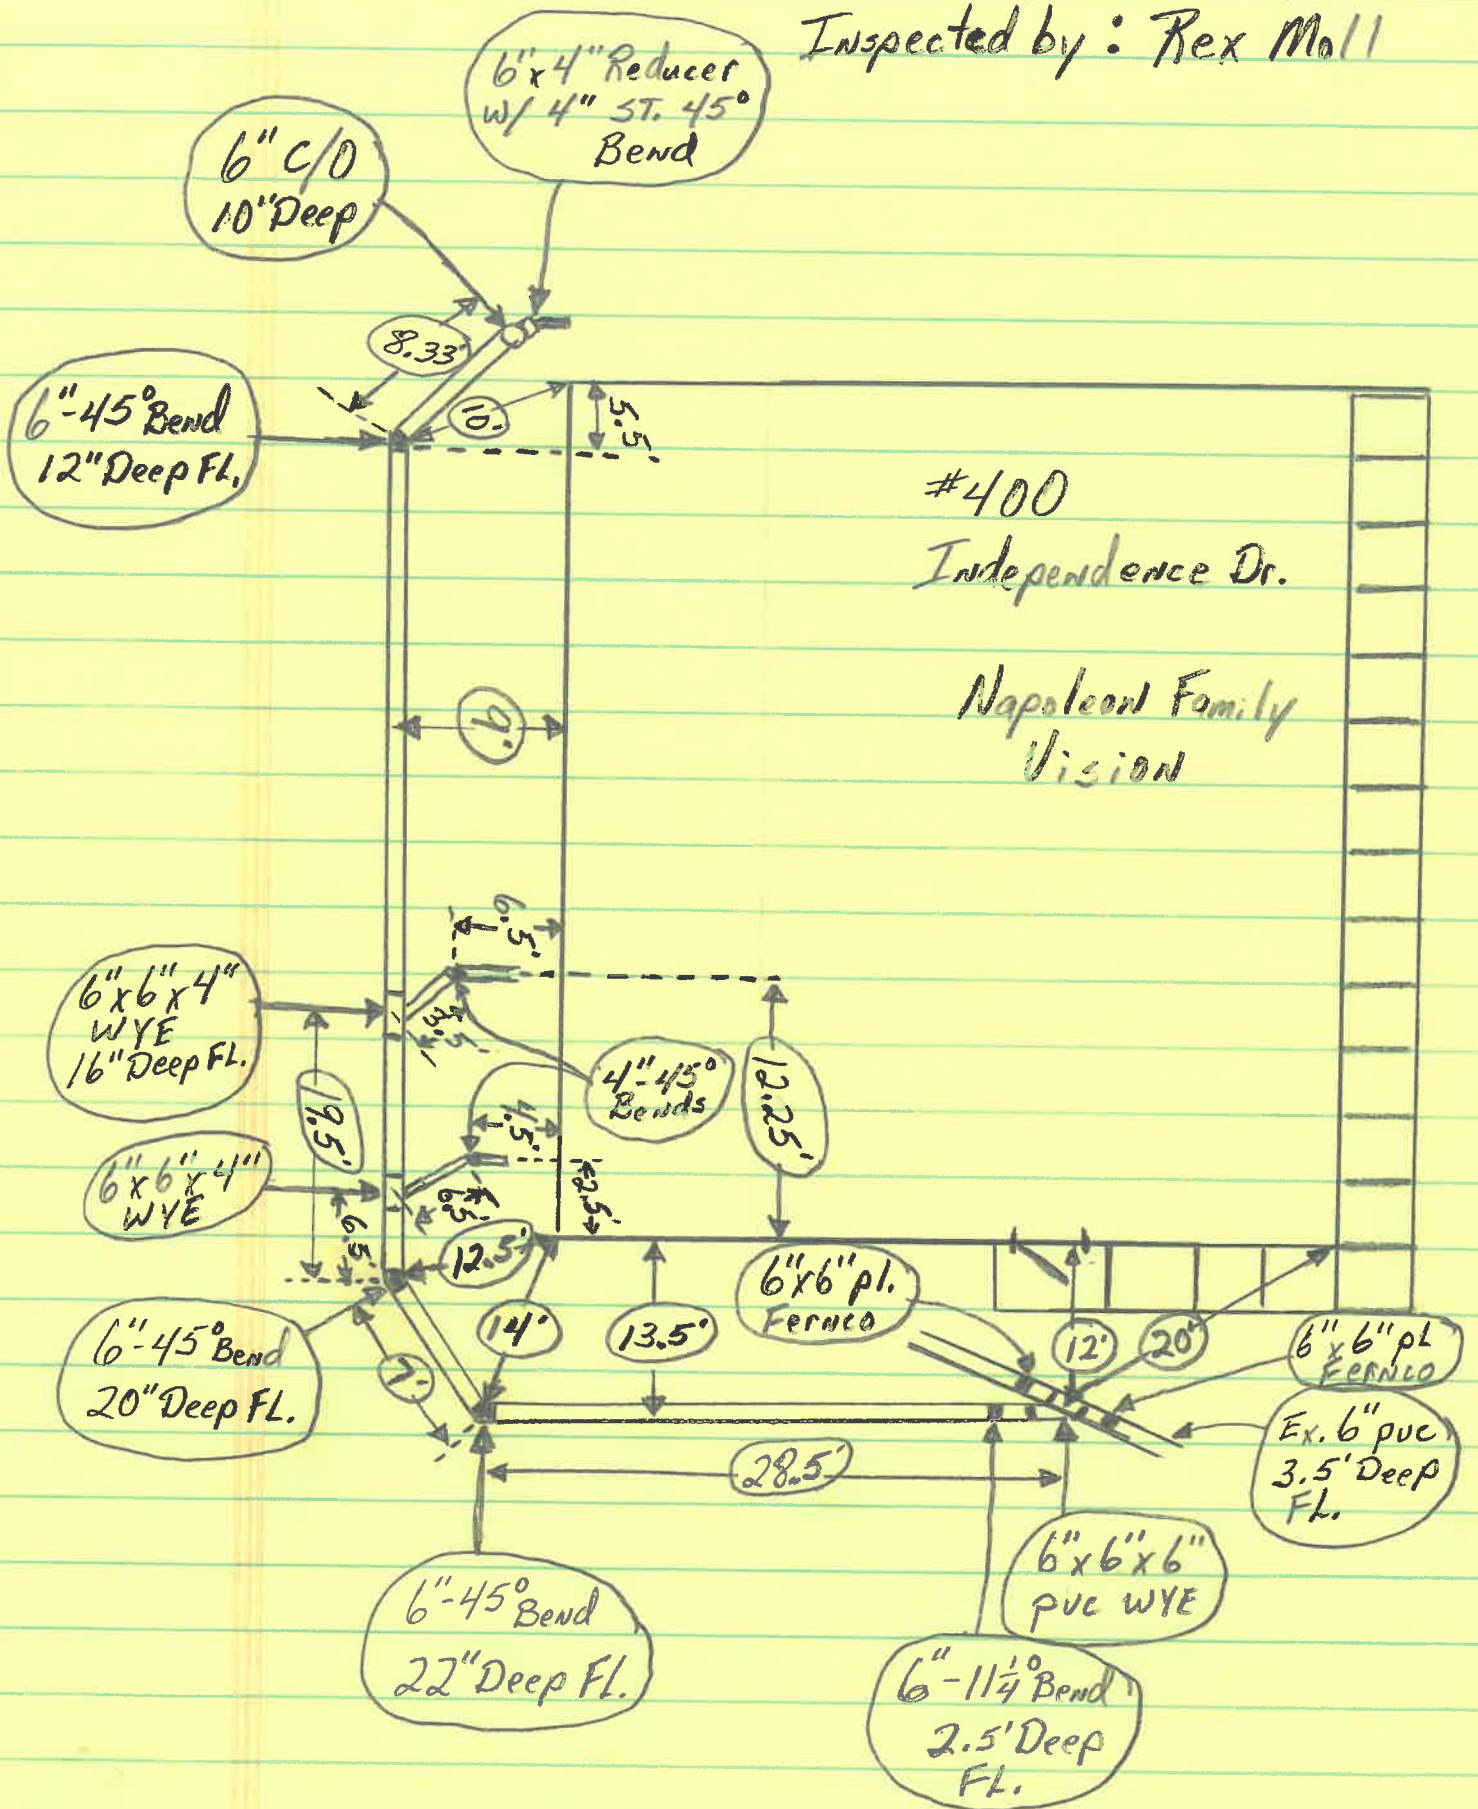 Inspected by: Rex Moll
6"x4" Reducer
w/ 4" ST. 45°
Bend
6" C/O
10" Deep
8.33'
10'
5.5'
6"-45° Bend
12" Deep FL.
#400
Independence Dr.
Napoleon Family
Vision
9'
6.5'
6"x6"x4"
WYE
16" Deep FL.
3.5'
4"-45°
Bends
12.25'
19.5'
4.5'
6"x6"x4"
WYE
6.5'
6.5'
2.5'
12.5'
6"x6" pl.
Fernco
14'
13.5'
12'
20'
6"x6" pl
FERNCO
6"-45° Bend
20" Deep FL.
7'
Ex. 6" pvc
3.5' Deep
FL.
28.5'
6"x6"x6"
pvc WYE
6"-45° Bend
22" Deep FL.
6"-11¼° Bend
2.5' Deep
FL.